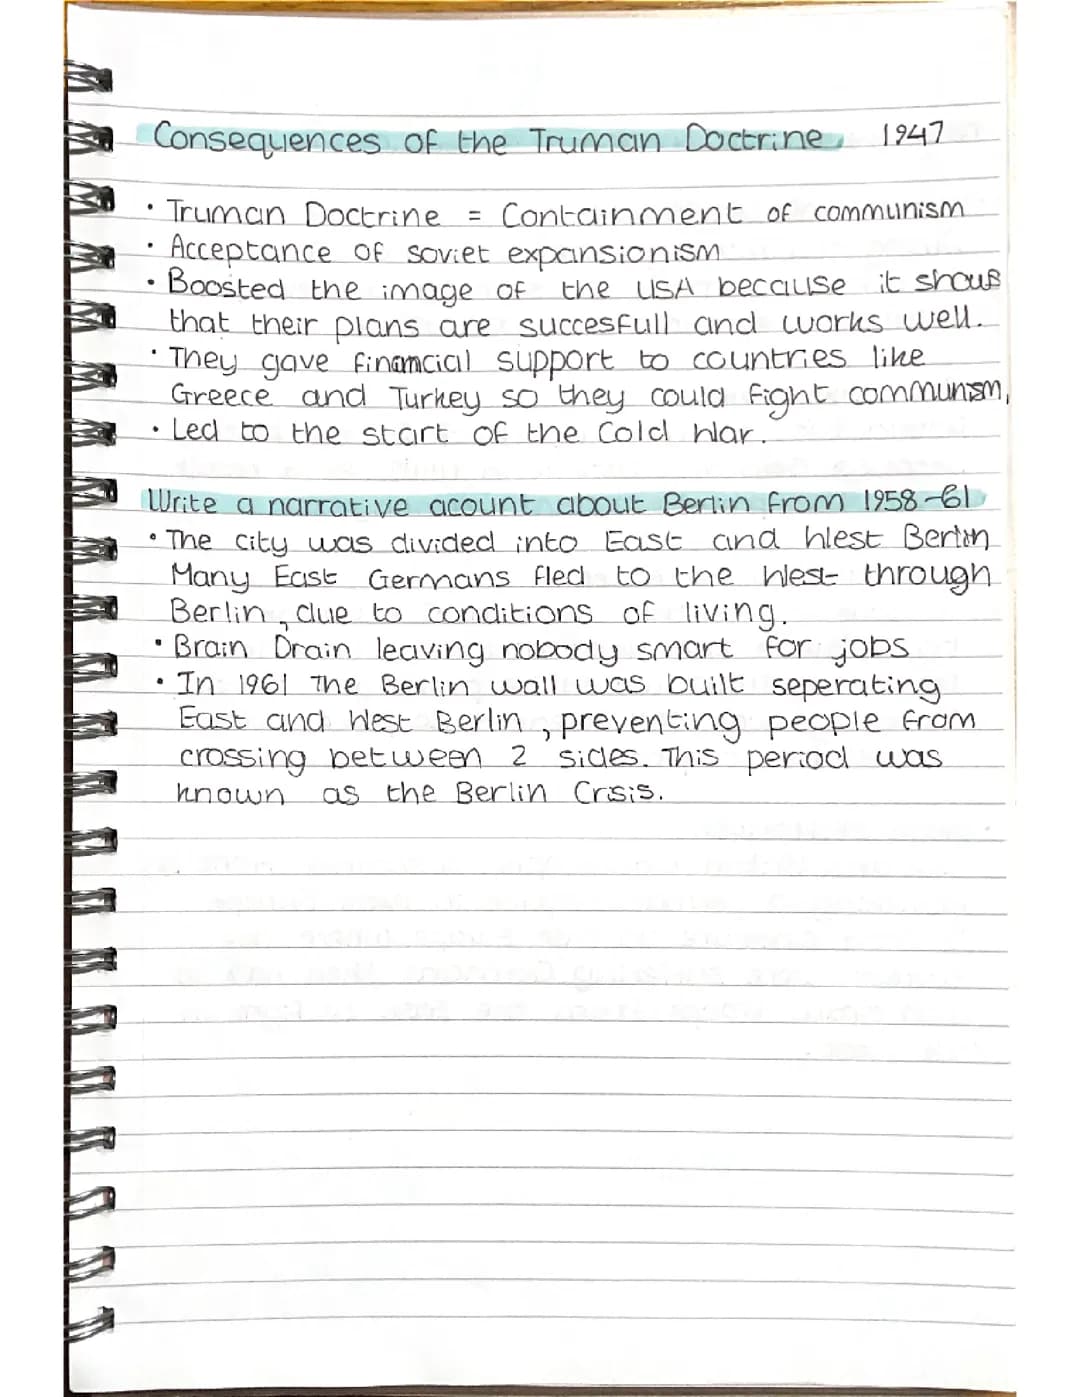 Consequences of the Truman Doctrine. 1947
• Truman Doctrine = Containment of communism
• Acceptance of soviet expansionism
• Boosted the image of the USA because it shows
that their plans are succesfull and works well.
• They gave financial support to countries like
Greece and Turkey so they could fight communism,
• Led to the start of the Cold War.
Write a narrative acount about Berlin from 1958-61
• The city was divided into East and West Berlin
Many East Germans fled to the West through
Berlin, due to conditions of living.
• Brain Drain leaving nobody smart for jobs
• In 1961 The Berlin wall was built seperating
East and West Berlin, preventing people from
crossing between 2 sides. This period was
known as the Berlin Crisis.